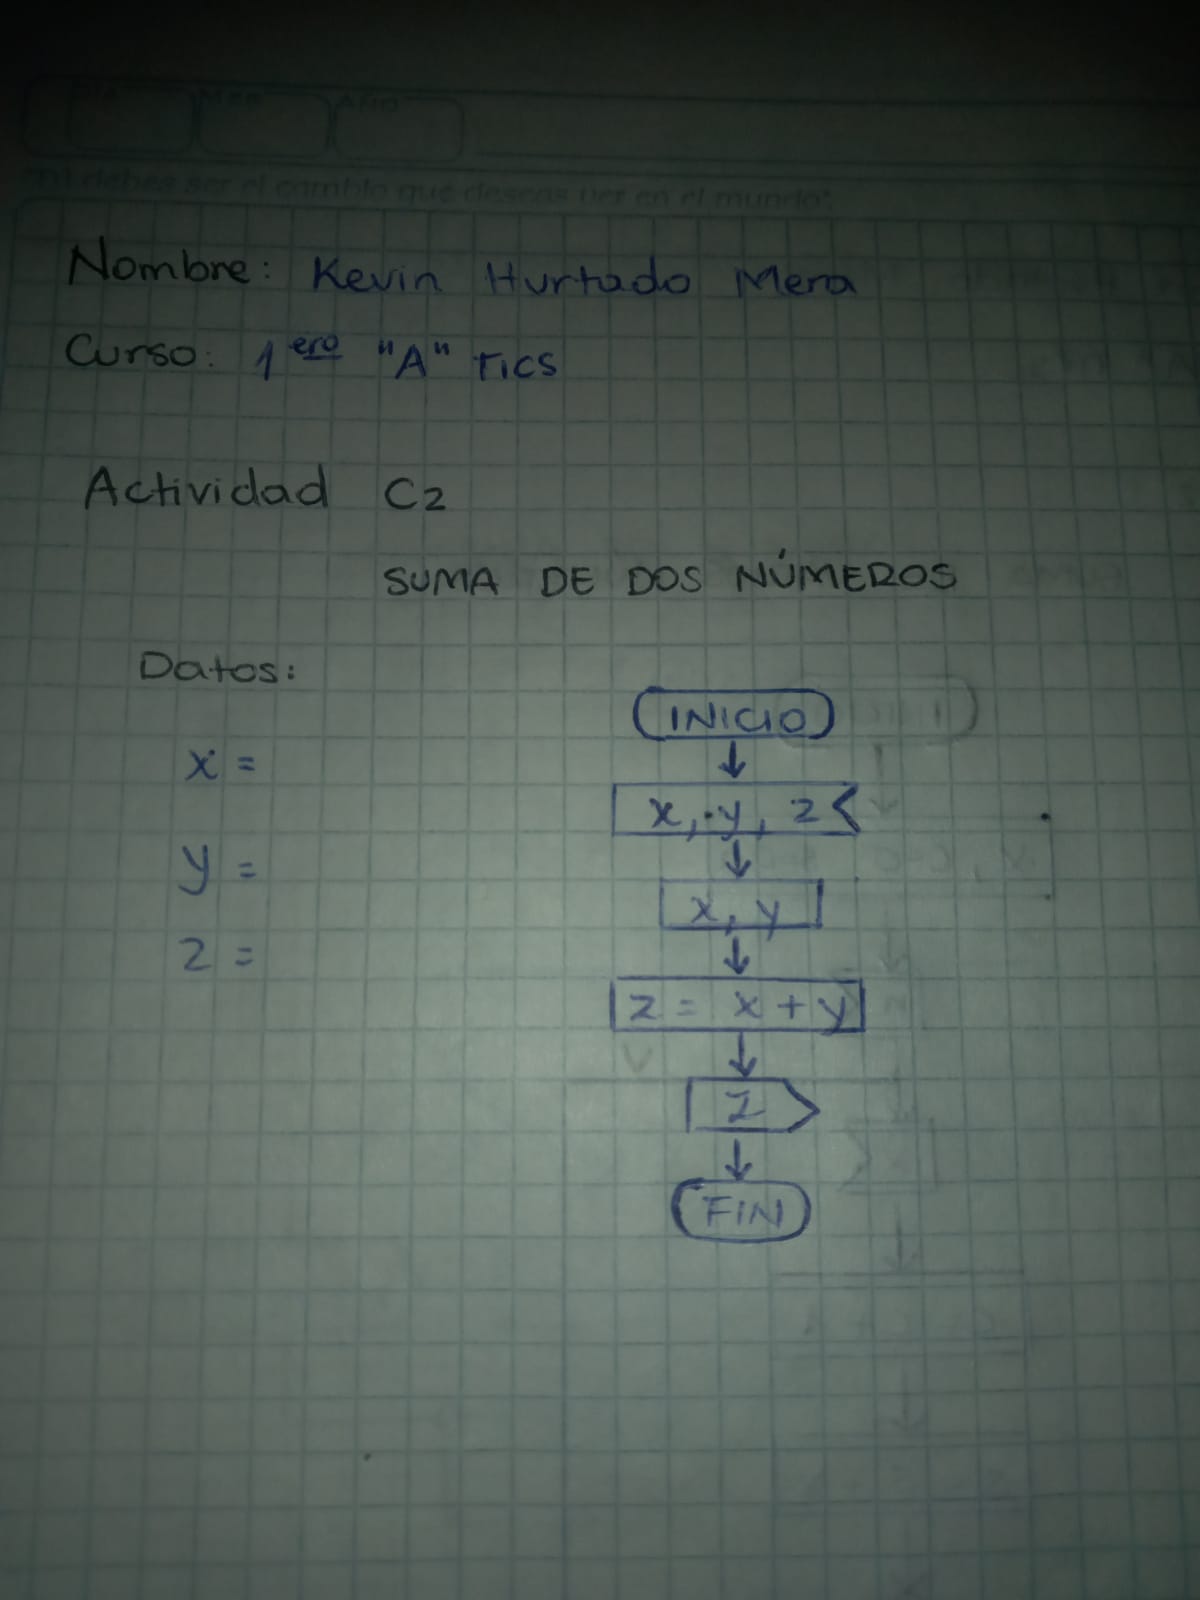 DIA MES AÑO
debes ser el cambio que deseas ver en el mundo"
Nombre: Kevin Hurtado Mera
Curso: 1ero "A" TICS
Actividad C2
SUMA DE DOS NÚMEROS
Datos:
x =
y =
z =
INICIO
x, y, z
x, y
z = x + y
z
FIN